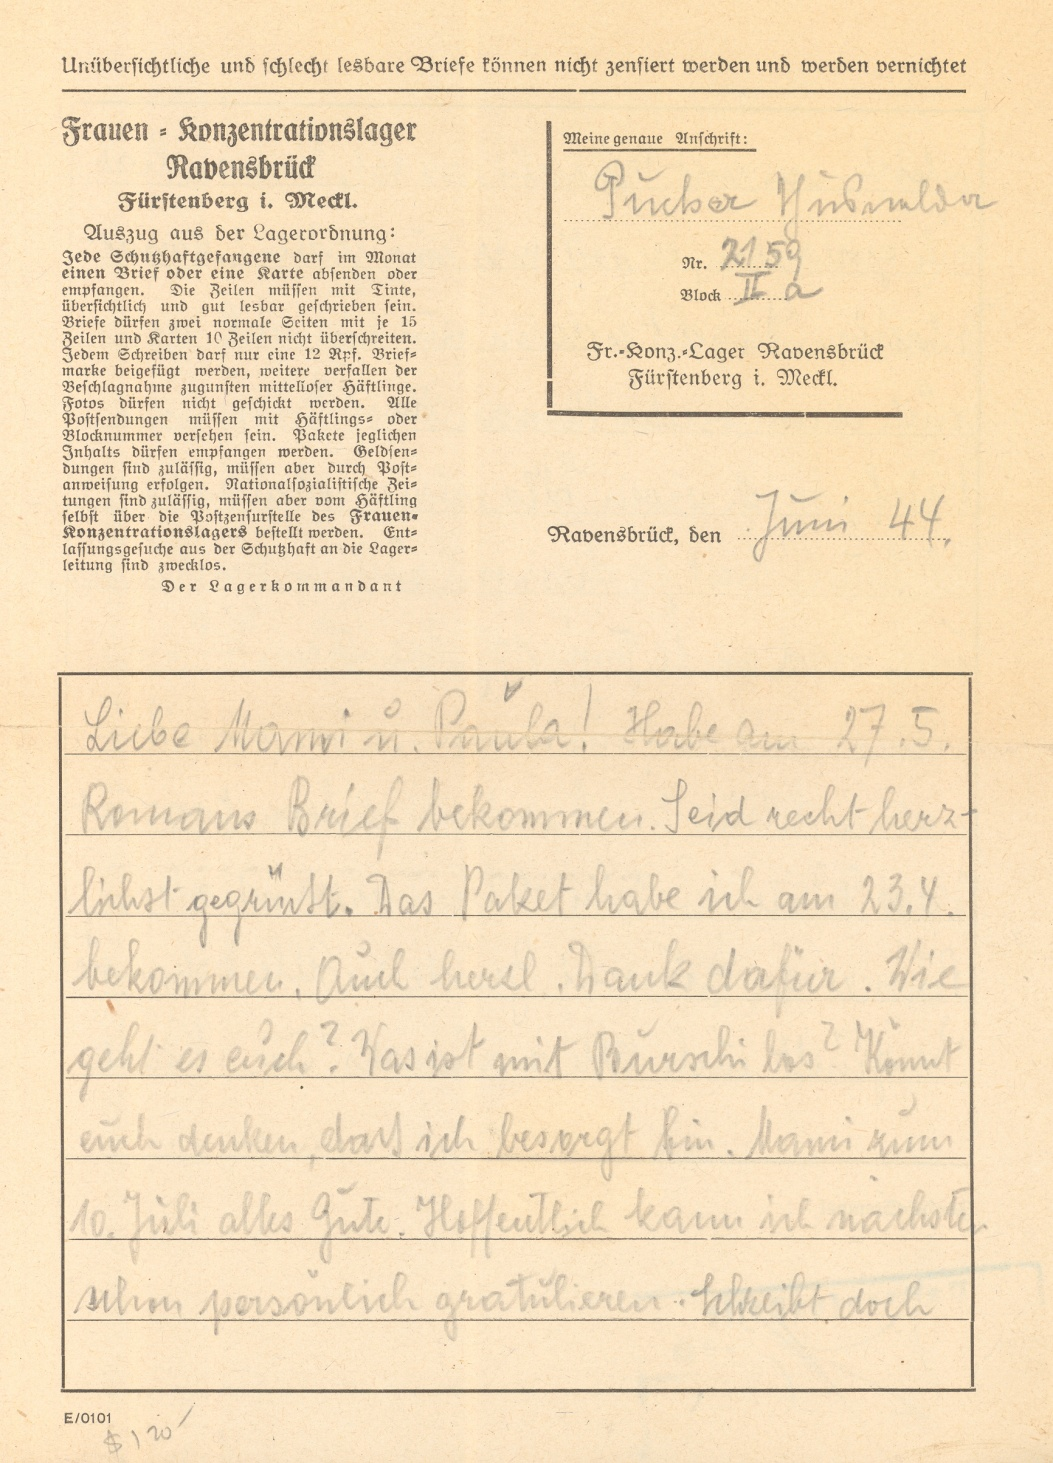 Unübersichtliche und schlecht lesbare Briefe können nicht zensiert werden und werden vernichtet
Frauen - Konzentrationslager
Ravensbrück
Fürstenberg i. Meckl.
Auszug aus der Lagerordnung:
Jede Schutzhaftgefangene darf im Monat
einen Brief oder eine Karte absenden oder
empfangen. Die Zeilen müssen mit Tinte,
übersichtlich und gut lesbar geschrieben sein.
Briefe dürfen zwei normale Seiten mit je 15
Zeilen und Karten 10 Zeilen nicht überschreiten.
Jedem Schreiben darf nur eine 12 Rpf. Brief-
marke beigefügt werden, weitere verfallen der
Beschlagnahme zugunsten mittelloser Häftlinge.
Fotos dürfen nicht geschickt werden. Alle
Postsendungen müssen mit Häftlings- oder
Blocknummer versehen sein. Pakete jeglichen
Inhalts dürfen empfangen werden. Geldsen-
dungen sind zulässig, müssen aber durch Post-
anweisung erfolgen. Nationalsozialistische Zei-
tungen sind zulässig, müssen aber vom Häftling
selbst über die Postzensurstelle des Frauen-
Konzentrationslagers bestellt werden. Ent-
lassungsgesuche aus der Schutzhaft an die Lager-
leitung sind zwecklos.
Der Lagerkommandant
Meine genaue Anschrift:
Nr. 2159
Block II a
Fr.-Konz.-Lager Ravensbrück
Fürstenberg i. Meckl.
Ravensbrück, den Juni 44.
Liebe Mami u. Paula! Habe am 27.5.
Romans Brief bekommen. Seid recht herz-
lichst gegrüßt. Das Paket habe ich am 23.4.
bekommen. Auch herzl. Dank dafür. Wie
geht es euch? Was ist mit Burschi los? Könnt
euch denken, dass ich besorgt bin. Mami zum
10. Juli alles Gute. Hoffentlich kann ich nächstes
schon persönlich gratulieren. Schreibt doch
E/0101